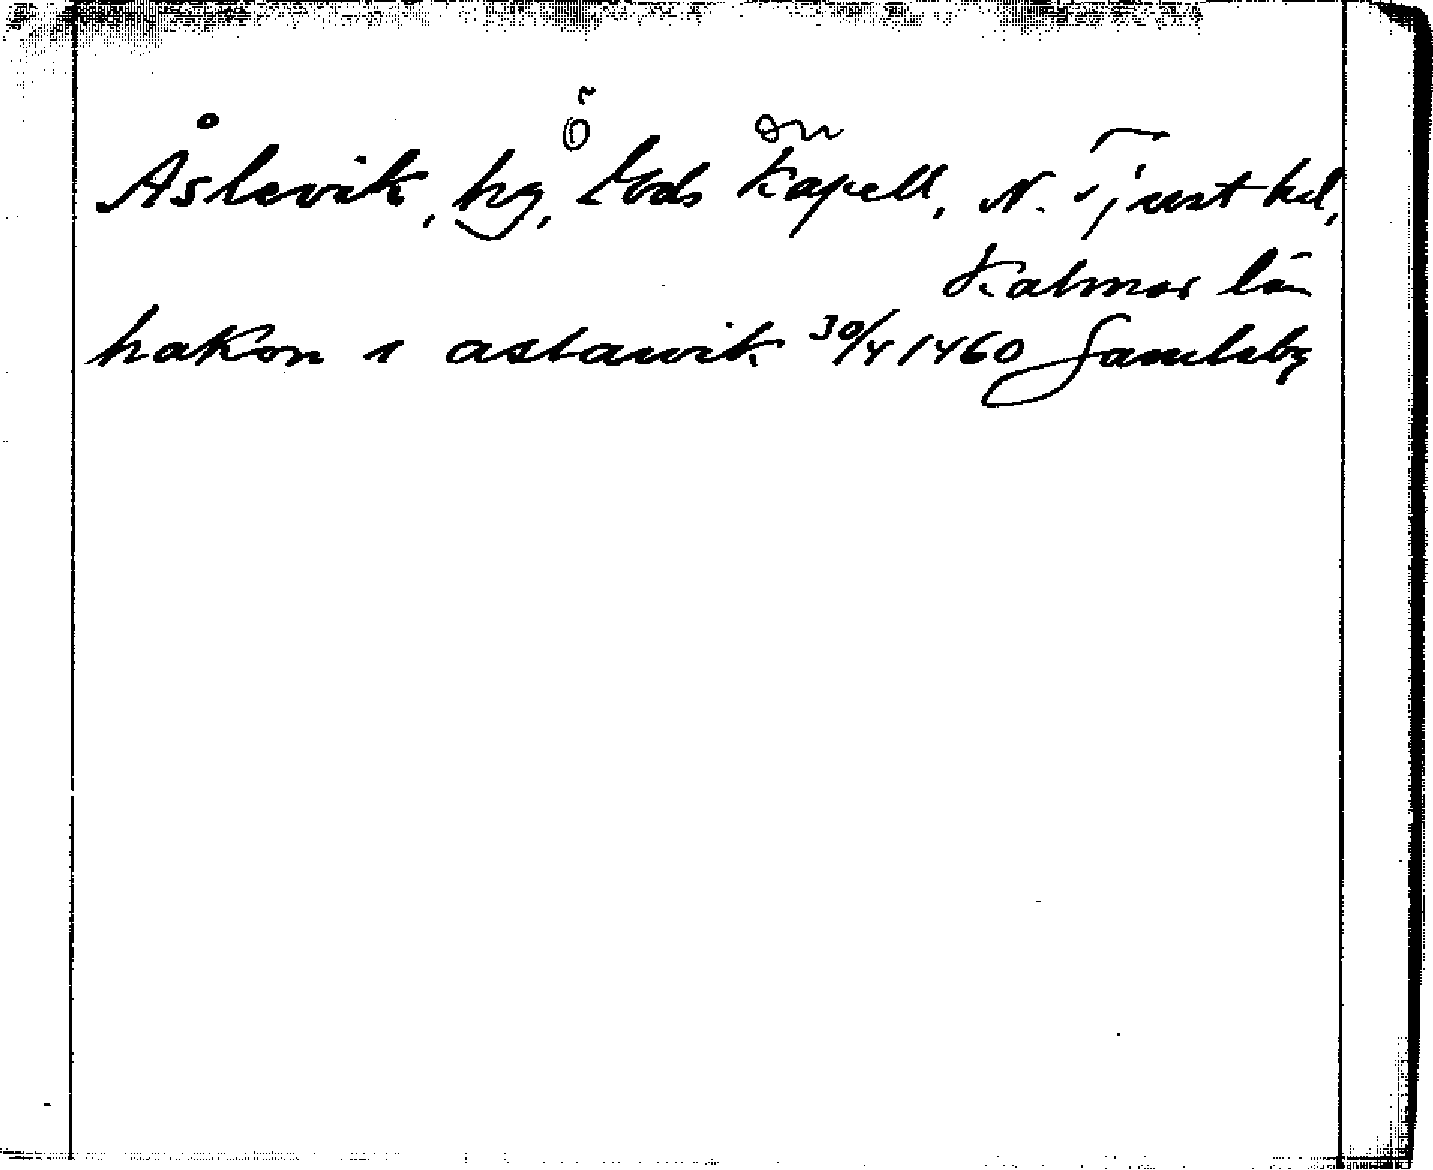 Åslevik, hg, Löds kapell, N. Tjust hd,
Kalmar län
hakon i aslawik 30/4 1460 Gamleby